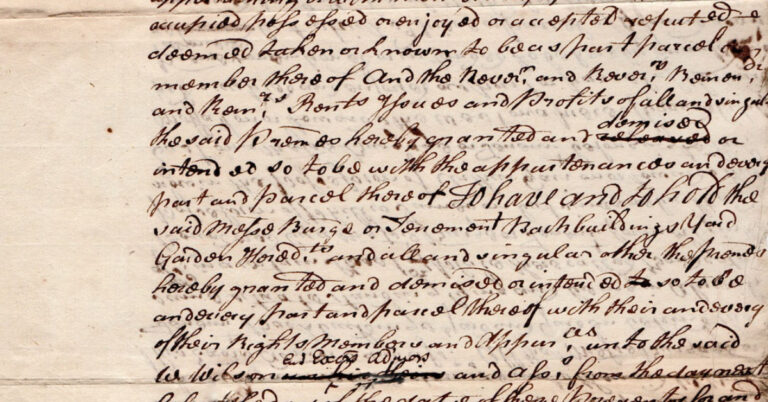 occupied possessed or enjoyed or accepted reputed
deemed taken or known to be as part parcel or
member thereof And the Rever.n and Rever.s Remen.dr
and Rem.rs Rents Yssues and Profits of all and singul
the said Premes hereby granted and released demised or
intended so to be with the appurtenances and every
part and parcel thereof To have and to hold the
said Messe Burge or Tenement Backbuildings Yard
Garden Hered.ts and all and singular other the premes
hereby granted and demised or intended to so to be
and every part and parcel thereof with their and every
of their Rights Members and Appur.ces unto the said
W Wilson Ex.s admors and ass.s from the day next
the date of these presents for and